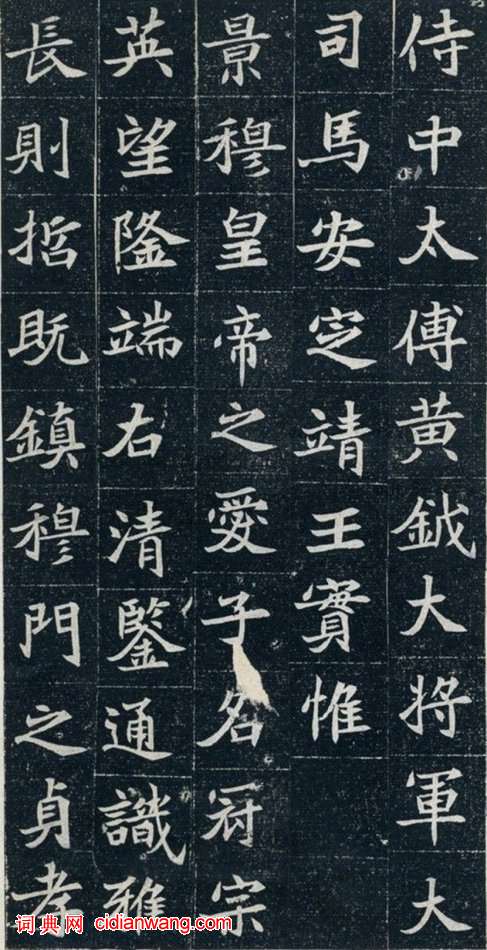 侍中太傅黄鉞大将軍大
司馬安定靖王實惟
景穆皇帝之愛子名冠宗
英望隆端右清鑒通識雅
長則哲既鎮穆門之貞孝
词典网 cidianwang.com